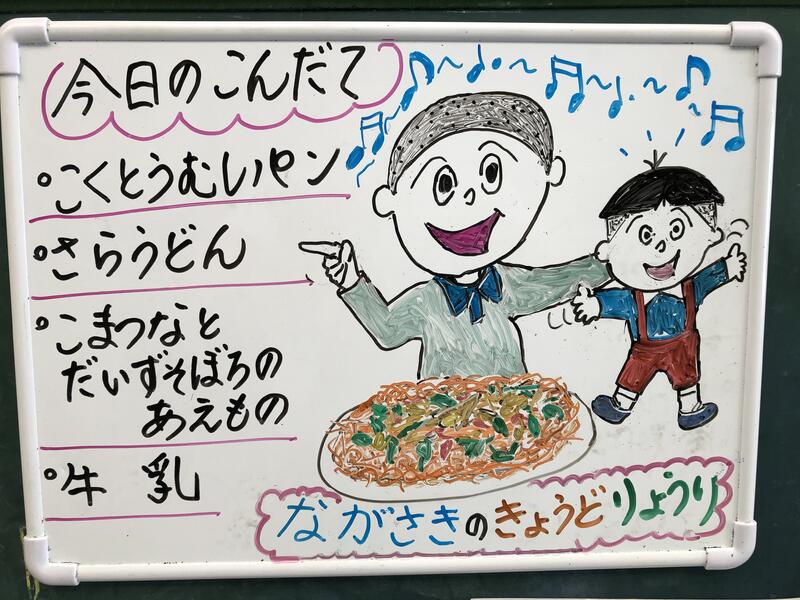 今日のこんだて
。こくとうむしパン
。さらうどん
。こまつなと
だいずそぼろの
あえもの
。牛乳
ながさきのきょうどりょうり